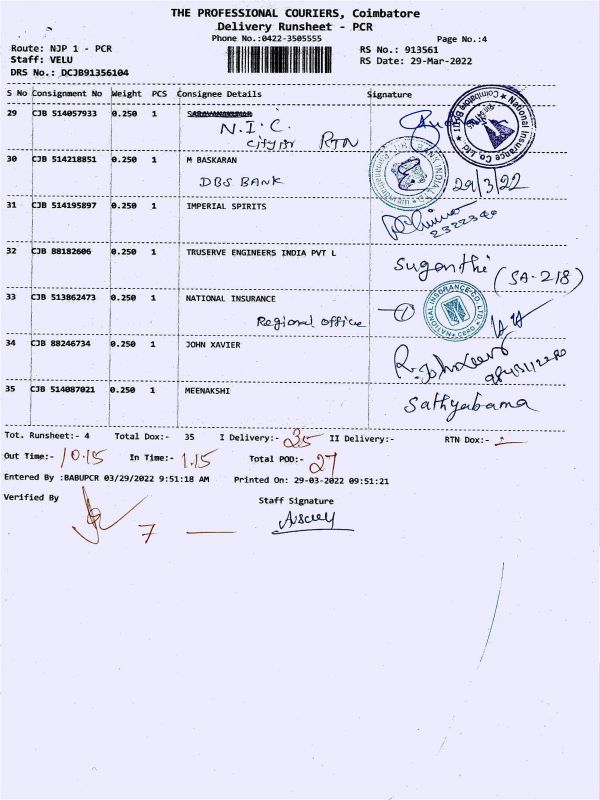 THE PROFESSIONAL COURIERS, Coimbatore
Delivery Runsheet - PCR
Phone No.:0422-3505555
Page No.:4
Route: NJP 1 - PCR
RS No.: 913561
Staff: VELU
RS Date: 29-Mar-2022
DRS No.: DCJB91356104
S No Consignment No Weight PCS Consignee Details Signature
29 CJB 514057933 0.250 1 SARAVANAKUMAR
N.I.C.
RTN
National Insurance Co. Ltd
30 CJB 514218851 0.250 1 M BASKARAN
DBS BANK
29/3/22
31 CJB 514195897 0.250 1 IMPERIAL SPIRITS
32 CJB 88182606 0.250 1 TRUSERVE ENGINEERS INDIA PVT L
Suganthi (SA-218)
33 CJB 513862473 0.250 1 NATIONAL INSURANCE
Regional office
NATIONAL INSURANCE CO. LTD.
34 CJB 88246734 0.250 1 JOHN XAVIER
35 CJB 514087021 0.250 1 MEENAKSHI
Sathyabama
Tot. Runsheet:- 4 Total Dox:- 35 I Delivery:- 35 II Delivery:- RTN Dox:- 1
Out Time:- 10.15 In Time:- 1.15 Total POD:- 27
Entered By :BABUPCR 03/29/2022 9:51:18 AM Printed On: 29-03-2022 09:51:21
Verified By Staff Signature
7 —